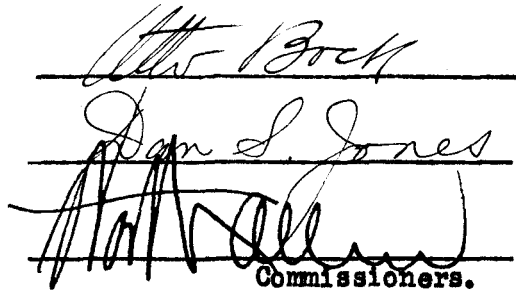 Otto Bock
Dan S. Jones
Commissioners.